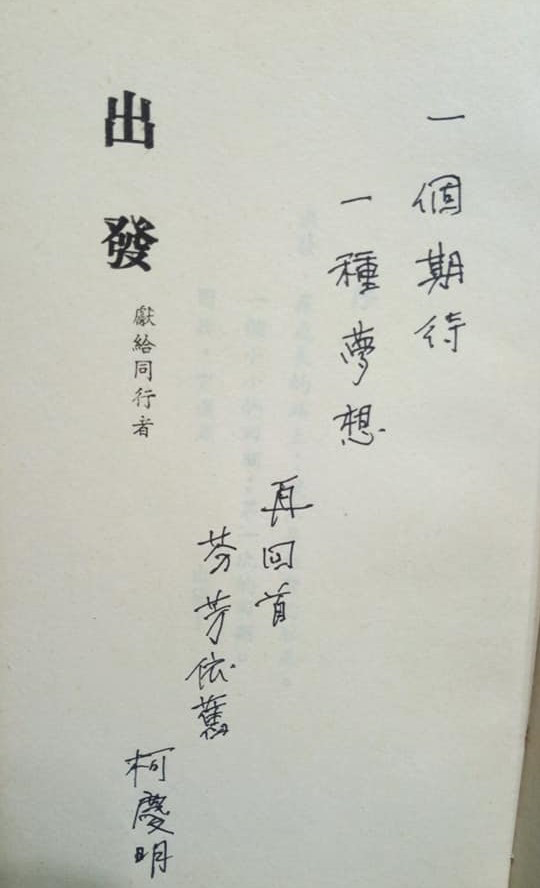 一個期待
一種夢想
再回首
芬芳依舊
柯慶明
出發
獻給同行者